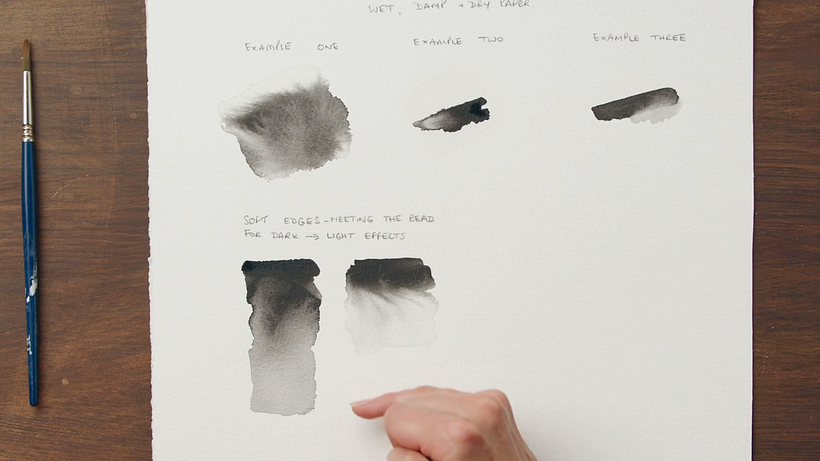 WET, DAMP + DRY PAPER.
EXAMPLE ONE
EXAMPLE TWO
EXAMPLE THREE
SOFT EDGES - MEETING THE BEAD
FOR DARK → LIGHT EFFECTS